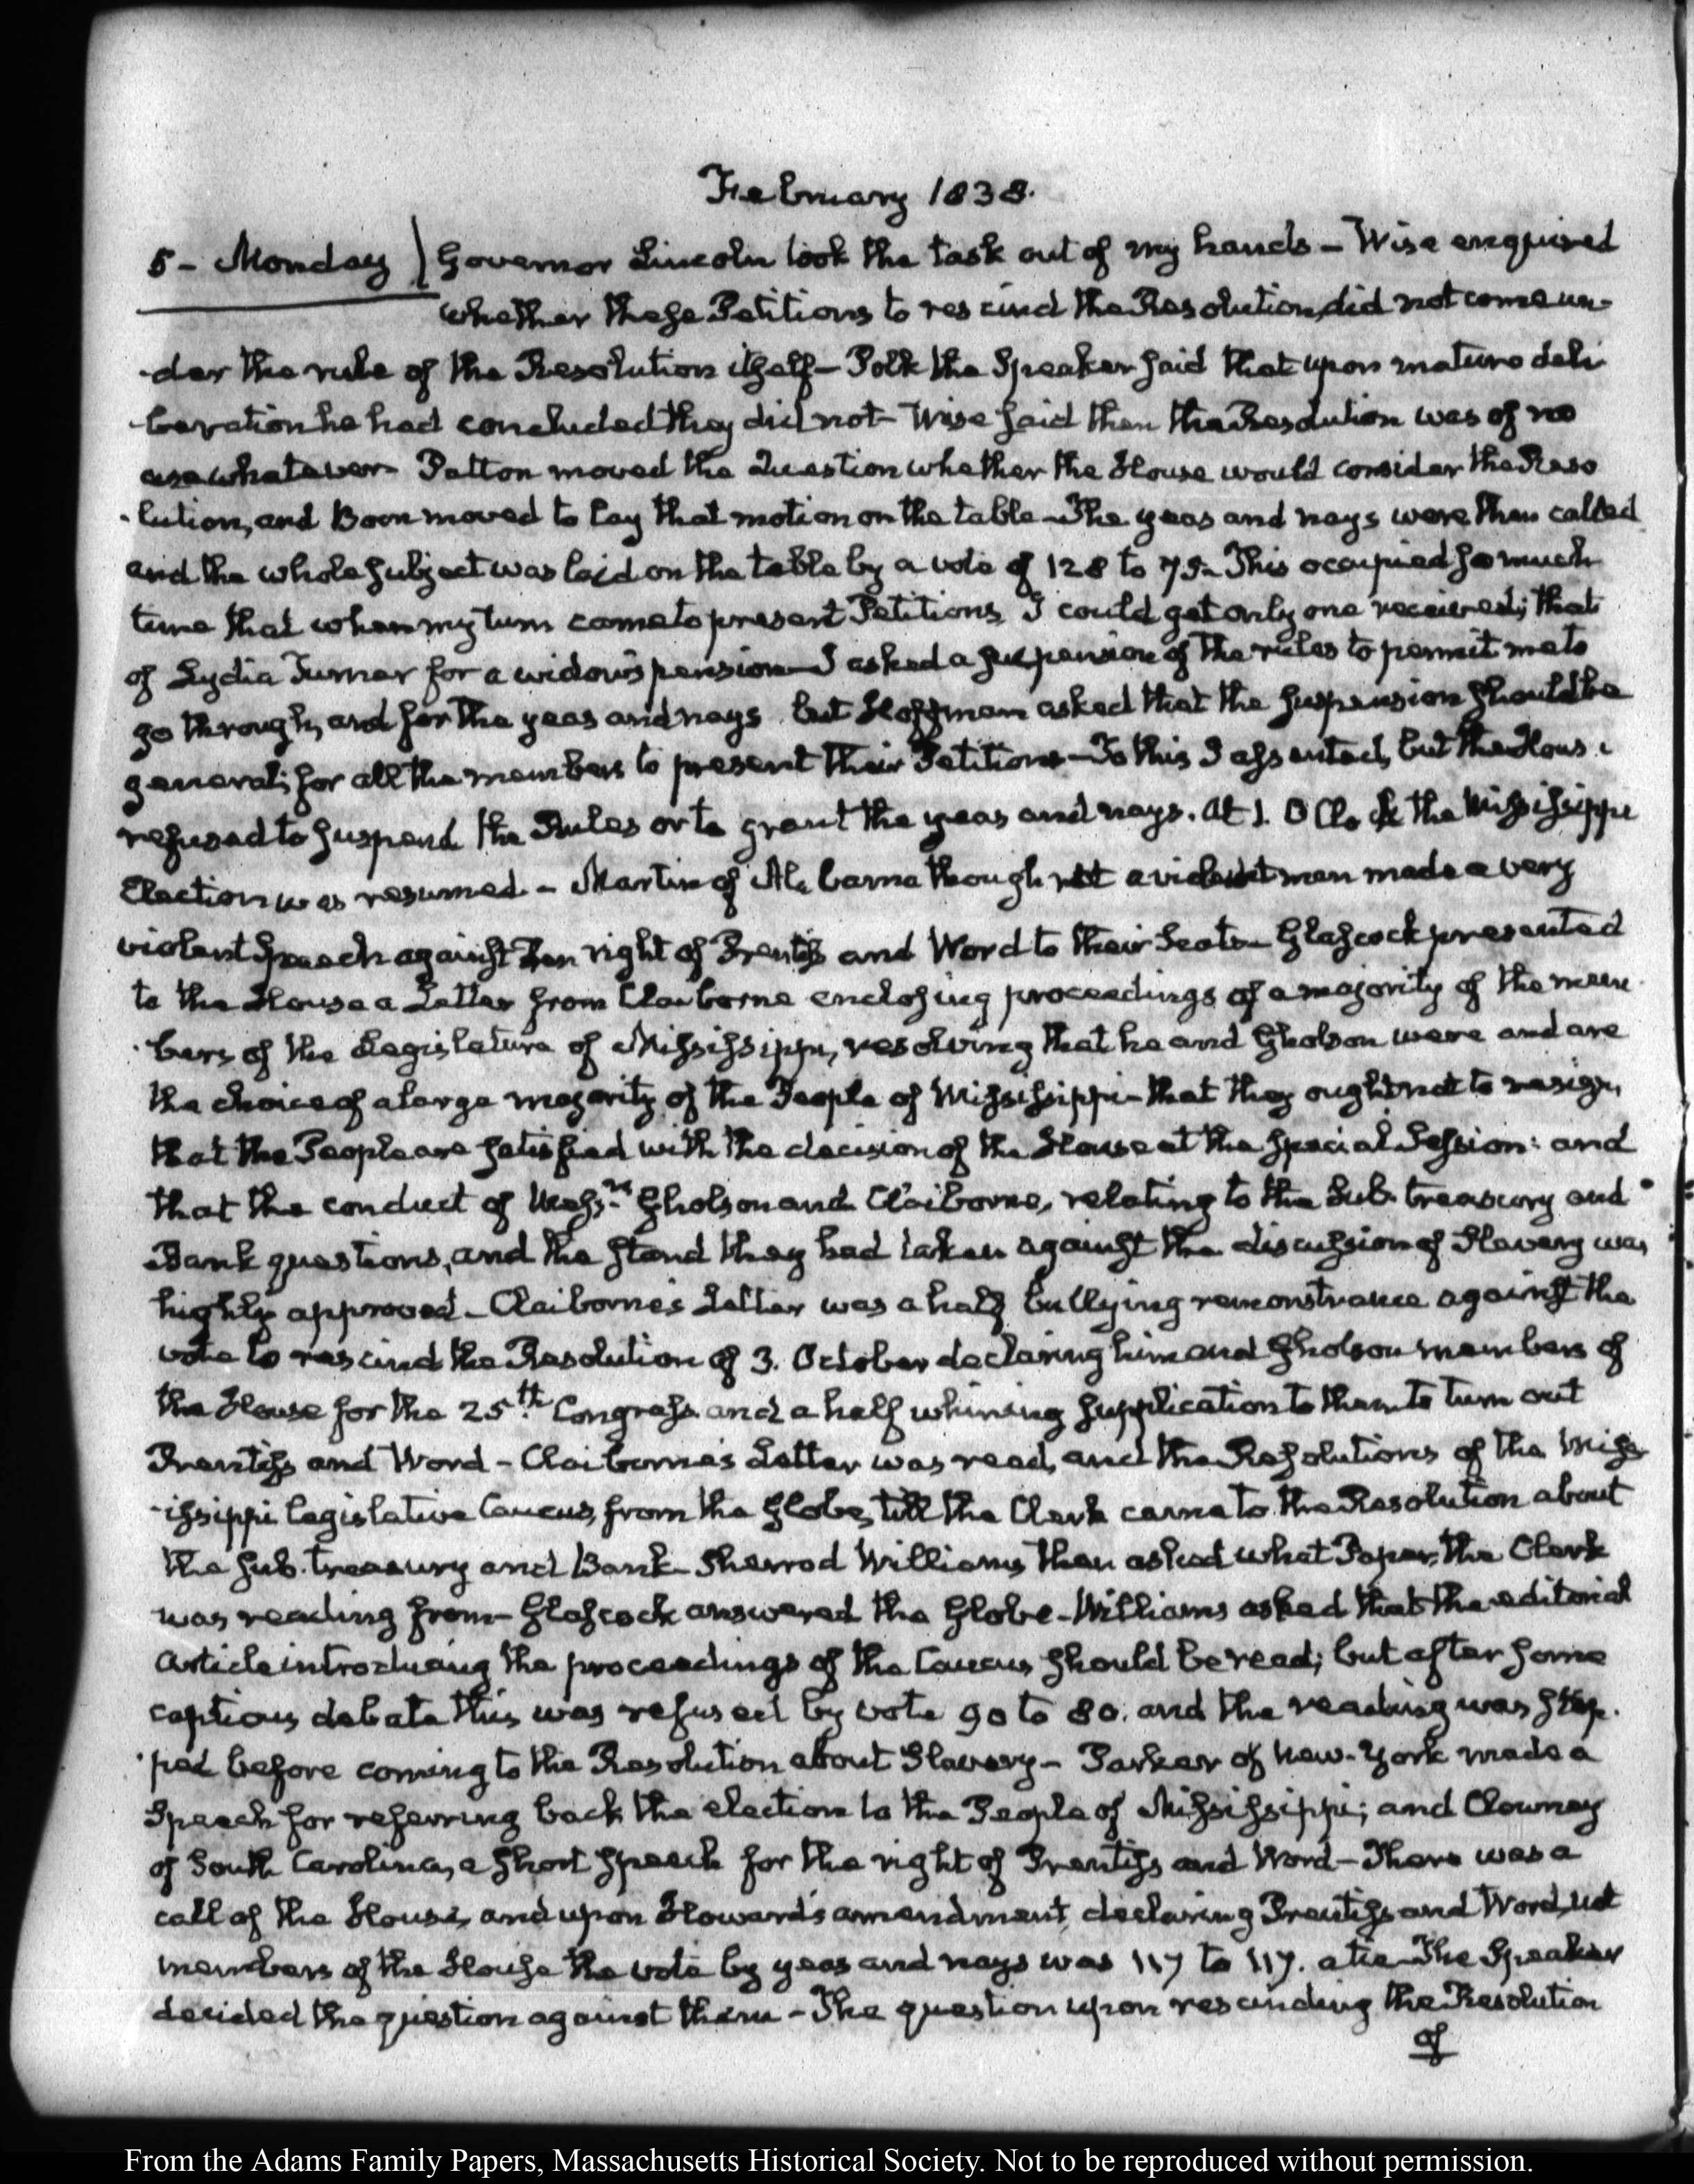 February 1838.
5 - Monday Governor Lincoln took the task out of my hands - Wise enquired
whether these Petitions to rescind the Resolution, did not come un-
-der the rule of the Resolution itself - Polk the Speaker said that upon mature deli
-beration he had concluded they did not - Wise said then the Resolution was of no
use whatever - Patton moved the Question whether the House would consider the Reso
-lution, and Boon moved to lay that motion on the table - The yeas and nays were then called
and the whole subject was laid on the table by a vote of 128 to 75 - This occupied so much
time that when my turn came to present Petitions, I could get only one received; that
of Lydia Turner for a widow's pension - I asked a suspension of the rules to permit me to
go through, and for the yeas and nays. but Hoffman asked that the suspension should be
general; for all the members to present their Petitions - To this I assented, but the House
refused to suspend the Rules or to grant the yeas and nays. At 1. O Clock the Mississippi
Election was resumed - Martin of Alabama though not a violent man made a very
violent Speech against the right of Prentiss and Word to their Seats - Glascock presented
to the House a Letter from Claiborne enclosing proceedings of a majority of the mem
-bers of the Legislature of Mississippi, resolving that he and Gholson were and are
the choice of a large majority of the People of Mississippi - that they ought not to resign,
that the People are satisfied with the decision of the House at the special Session: and
that the conduct of Messrs. Gholson and Claiborne, relating to the Sub. treasury and
Bank questions, and the stand they had taken against the discussion of Slavery was
highly approved - Claiborne's Letter was a half bullying remonstrance against the
vote to rescind the Resolution of 3. October declaring him and Gholson members of
the House for the 25th. Congress and a half whining supplication to them to turn out
Prentiss and Word - Claiborne's Letter was read, and the Resolutions of the Miss
-issippi legislative Caucus, from the Globe, till the Clerk came to the Resolution about
the sub. treasury and Bank - Sherrod Williams then asked what Paper, the Clerk
was reading from - Glascock answered the Globe - Williams asked that the editorial
article introducing the proceedings of the Caucus should be read; but after some
captious debate this was refused by vote 90 to 80. and the reading was stop-
-ped before coming to the Resolution about Slavery - Parker of New-York made a
Speech for referring back the election to the People of Mississippi; and Clowney
of South Carolina, a short speech for the right of Prentiss and Word - There was a
call of the House, and upon Howard's amendment, declaring Prentiss and Word, not
members of the House the vote by yeas and nays was 117 to 117. a tie - The Speaker
decided the question against them - The question upon rescinding the Resolution
of
From the Adams Family Papers, Massachusetts Historical Society. Not to be reproduced without permission.